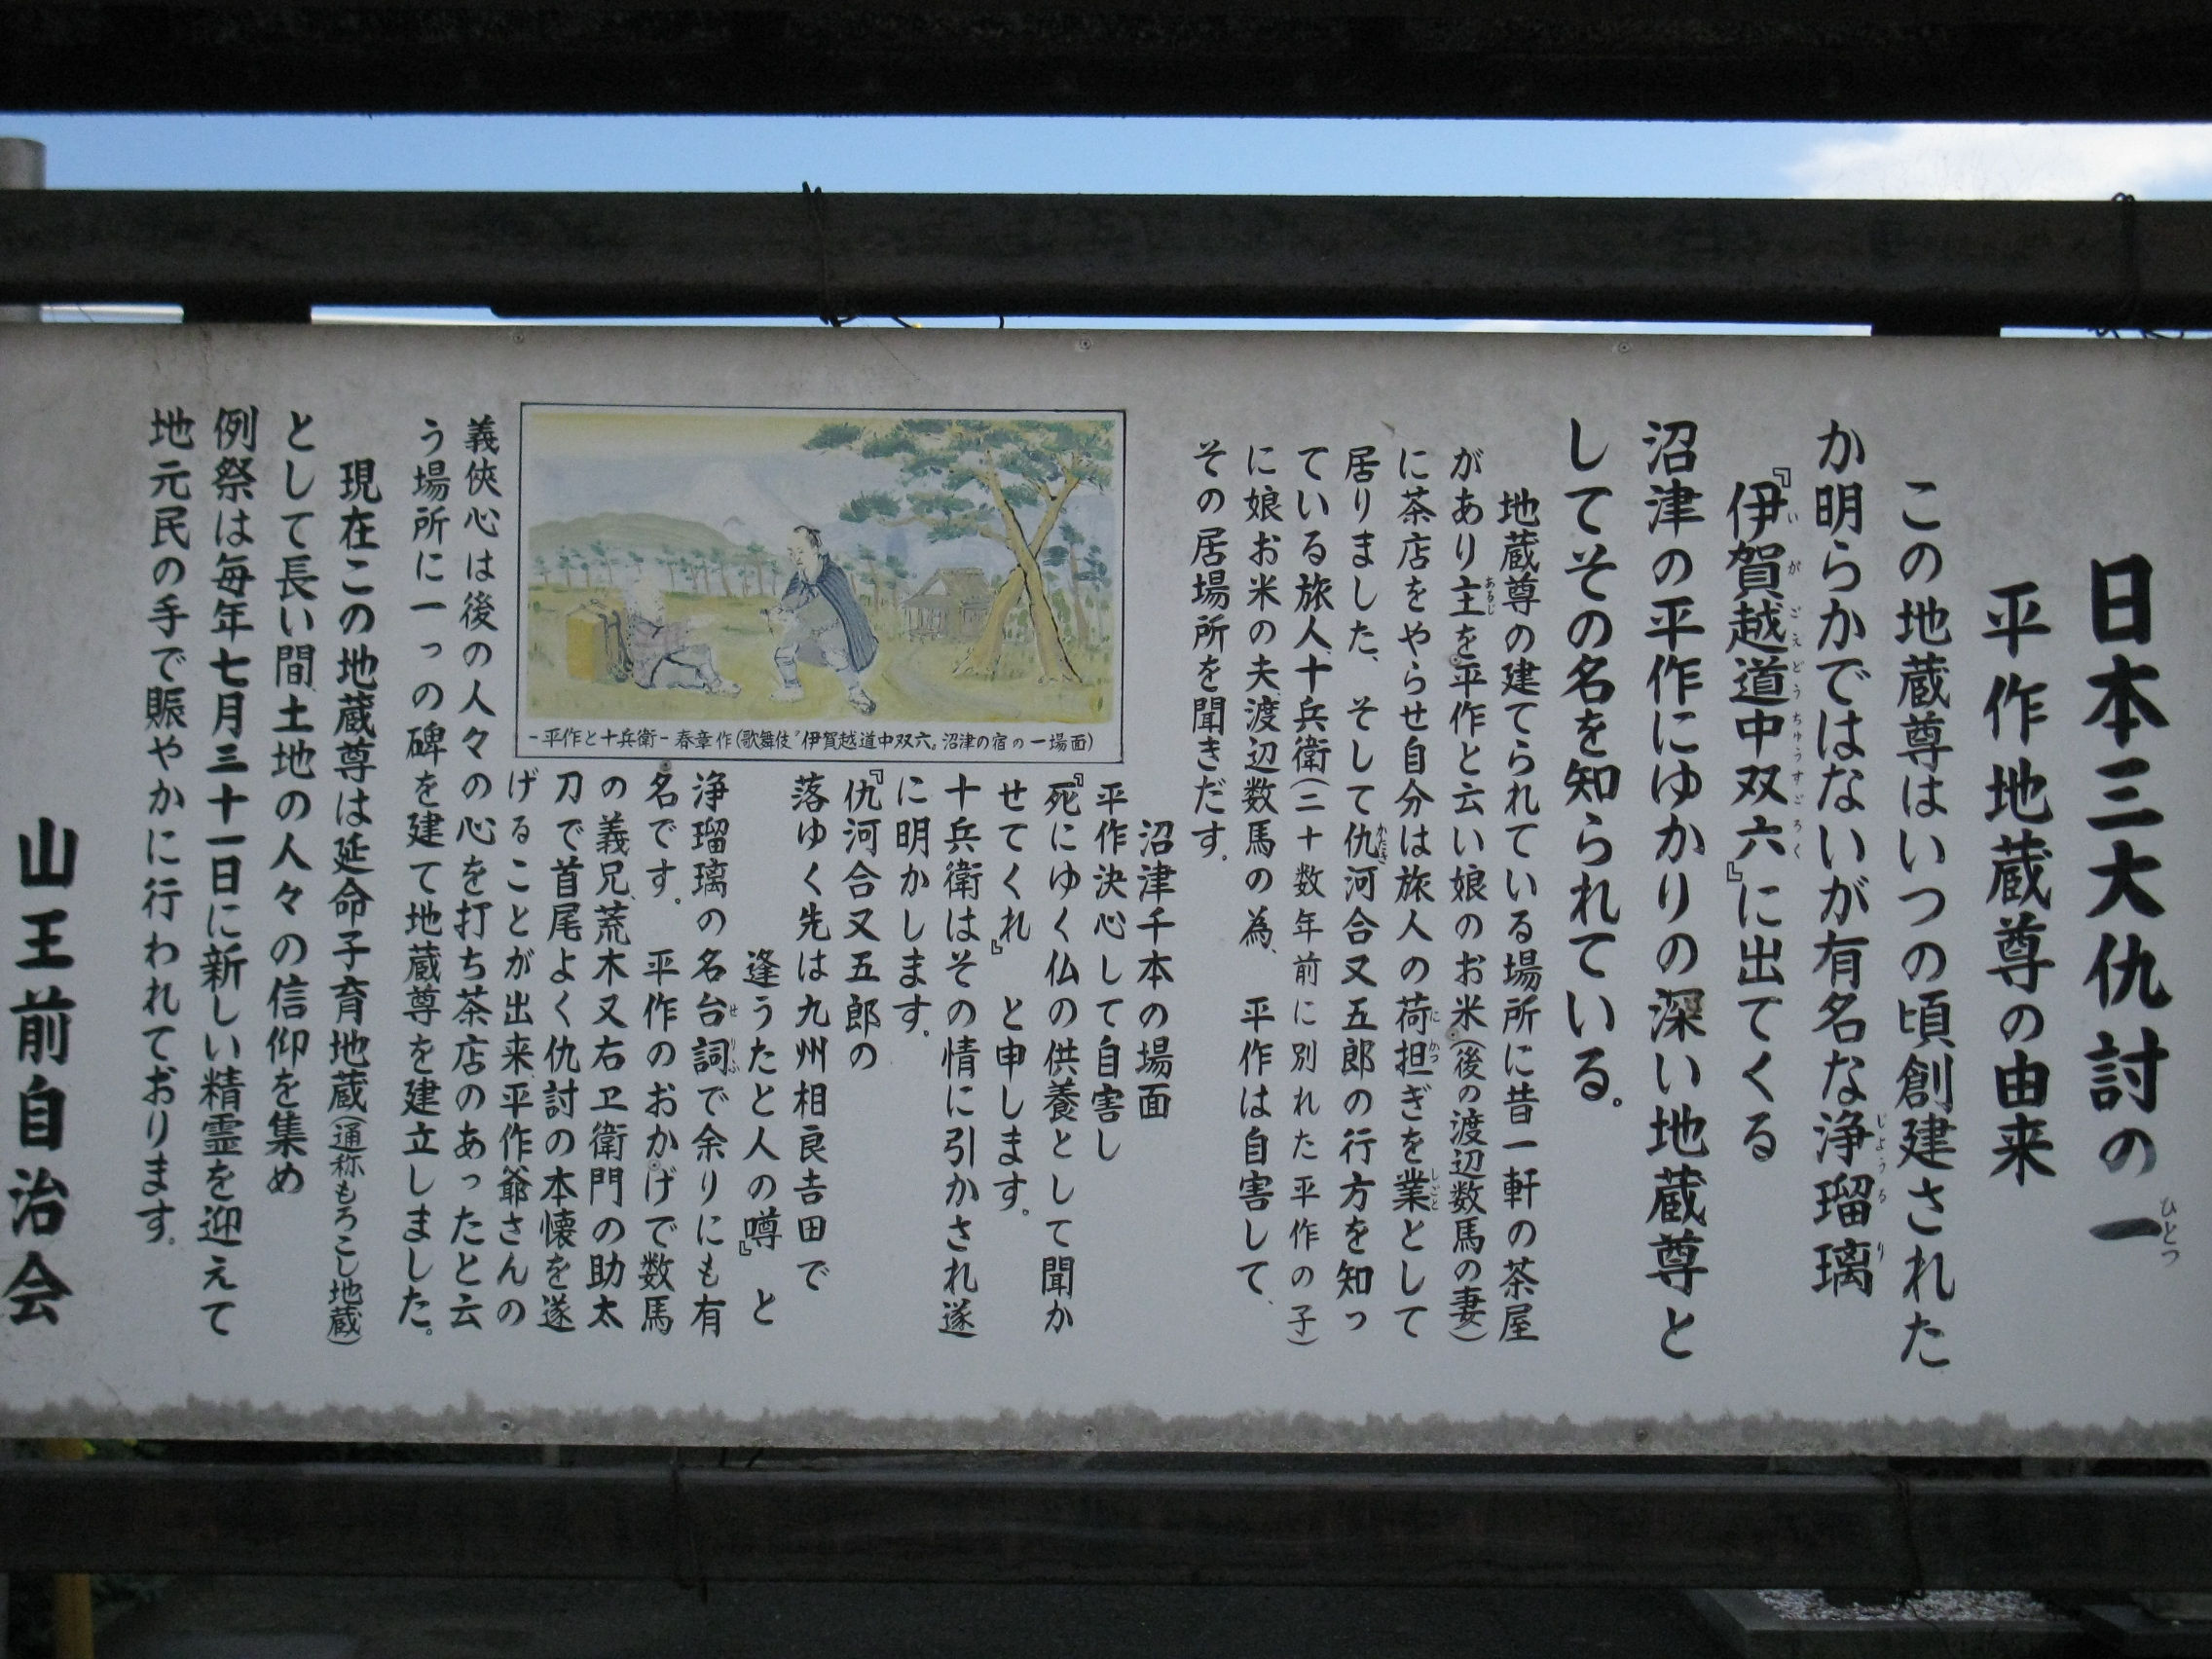 日本三大仇討の一
平作地蔵尊の由来
この地蔵尊はいつの頃創建された
か明らかではないが有名な浄瑠璃
『伊賀越道中双六』に出てくる
沼津の平作にゆかりの深い地蔵尊と
してその名を知られている。
地蔵尊の建てられている場所に昔一軒の茶屋
があり主を平作と云い娘のお米(後の渡辺数馬の妻)
に茶店をやらせ自分は旅人の荷担ぎを業として
居りました、そして仇河合又五郎の行方を知っ
ている旅人十兵衛(二十数年前に別れた平作の子)
に娘お米の夫渡辺数馬の為、平作は自害して、
その居場所を聞きだす。
沼津千本の場面
平作決心して自害し
『死にゆく仏の供養として聞か
せてくれ』と申します。
十兵衛はその情に引かされ遂
に明かします。
『仇河合又五郎の
落ゆく先は九州相良吉田で
逢うたと人の噂』と
浄瑠璃の名台詞で余りにも有
名です。平作のおかげで数馬
の義兄荒木又右ヱ衛門の助太
刀で首尾よく仇討の本懐を遂
げることが出来平作爺さんの
義侠心は後の人々の心を打ち茶店のあったと云
う場所に一っの碑を建て地蔵尊を建立しました。
現在この地蔵尊は延命子育地蔵(通称もろこし地蔵)
として長い間土地の人々の信仰を集め
例祭は毎年七月三十一日に新しい精霊を迎えて
地元民の手で賑やかに行われております。
山王前自治会
-平作と十兵衛-春章作(歌舞伎〝伊賀越道中双六〟沼津の宿の一場面)
ひとつ
じょうるり
いがごえどうちゅうすごろく
あるじ
にかつ
しごと
かたき
せりふ